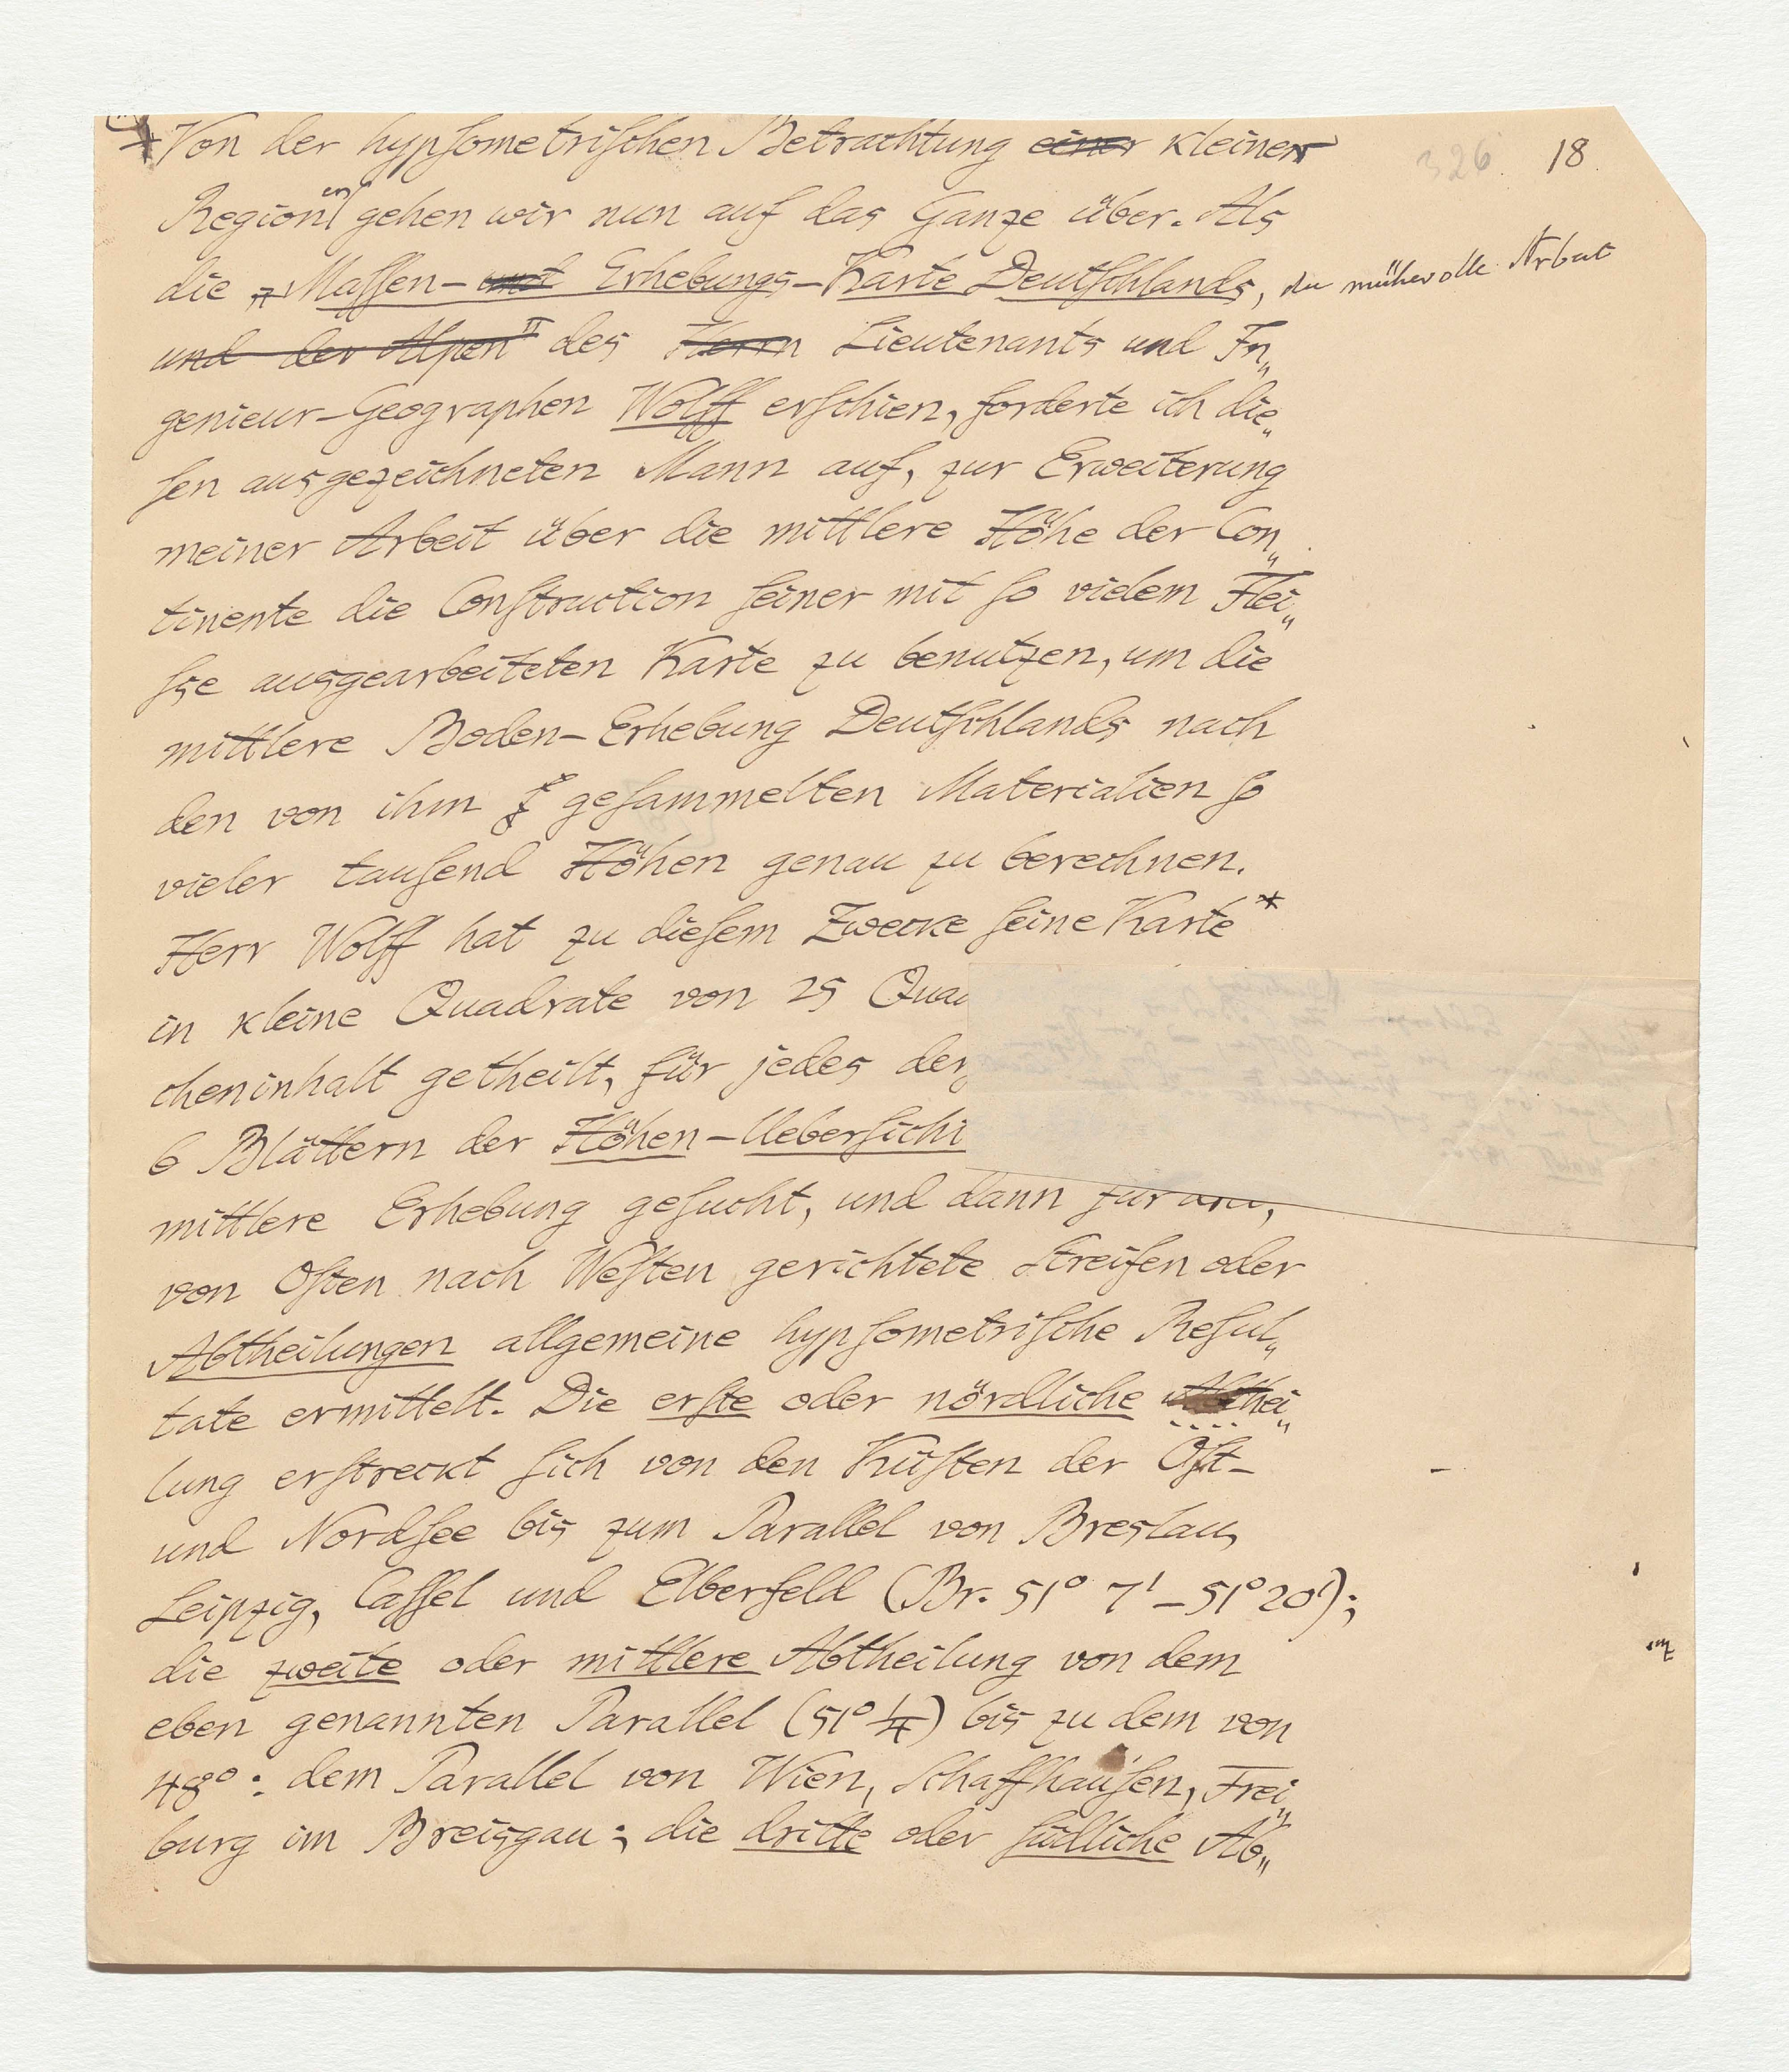 326. 18.
Von der hypsometrischen Betrachtung einer kleiner
Regionen gehen wir nun auf das Ganze über. Als
die „Massen-und Erhebungs-Karte Deutschlands, die mühevolle Arbeit
und der Alpen" des Herrn Lieutenants und In„
genieur-Geographen Wolff erschien, forderte ich die„
sen ausgezeichneten Mann auf, zur Erweiterung
meiner Arbeit über die mittlere Höhe der Con„
tinente die Construction seiner mit so vielem Flei„
sse ausgearbeiteten Karte zu benutzen, um die
mittlere Boden-Erhebung Deutschlands nach
den von ihm gesammelten Materialien so
vieler tausend Höhen genau zu berechnen.
Herr Wolff hat zu diesem Zwecke seine Karte*
in kleine Quadrate von 25 Qua
cheninhalt getheilt, für jedes der
6 Blättern der Höhen-Uebersicht
mittlere Erhebung gesucht, und dann für drei,
von Osten nach Westen gerichtete Streifen oder
Abtheilungen allgemeine hypsometrische Resul„
tate ermittelt. Die erste oder nördliche Abthei„
lung erstreckt sich von den Küsten der Ost-
und Nordsee bis zum Parallel von Breslau,
Leipzig, Cassel und Elberfeld (Br. 51° 7' – 51° 20');
die zweite oder mittlere Abtheilung von dem
eben genannten Parallel (51° 1/4) bis zu dem von
48°: dem Parallel von Wien, Schaffhausen, Frei„
burg im Breisgau; die dritte oder südliche Ab„